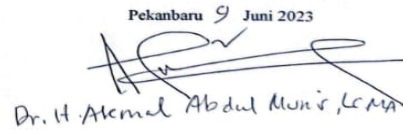 Pekanbaru 9 Juni 2023
Dr. H. Akmal Abdul Munir, Lc MA